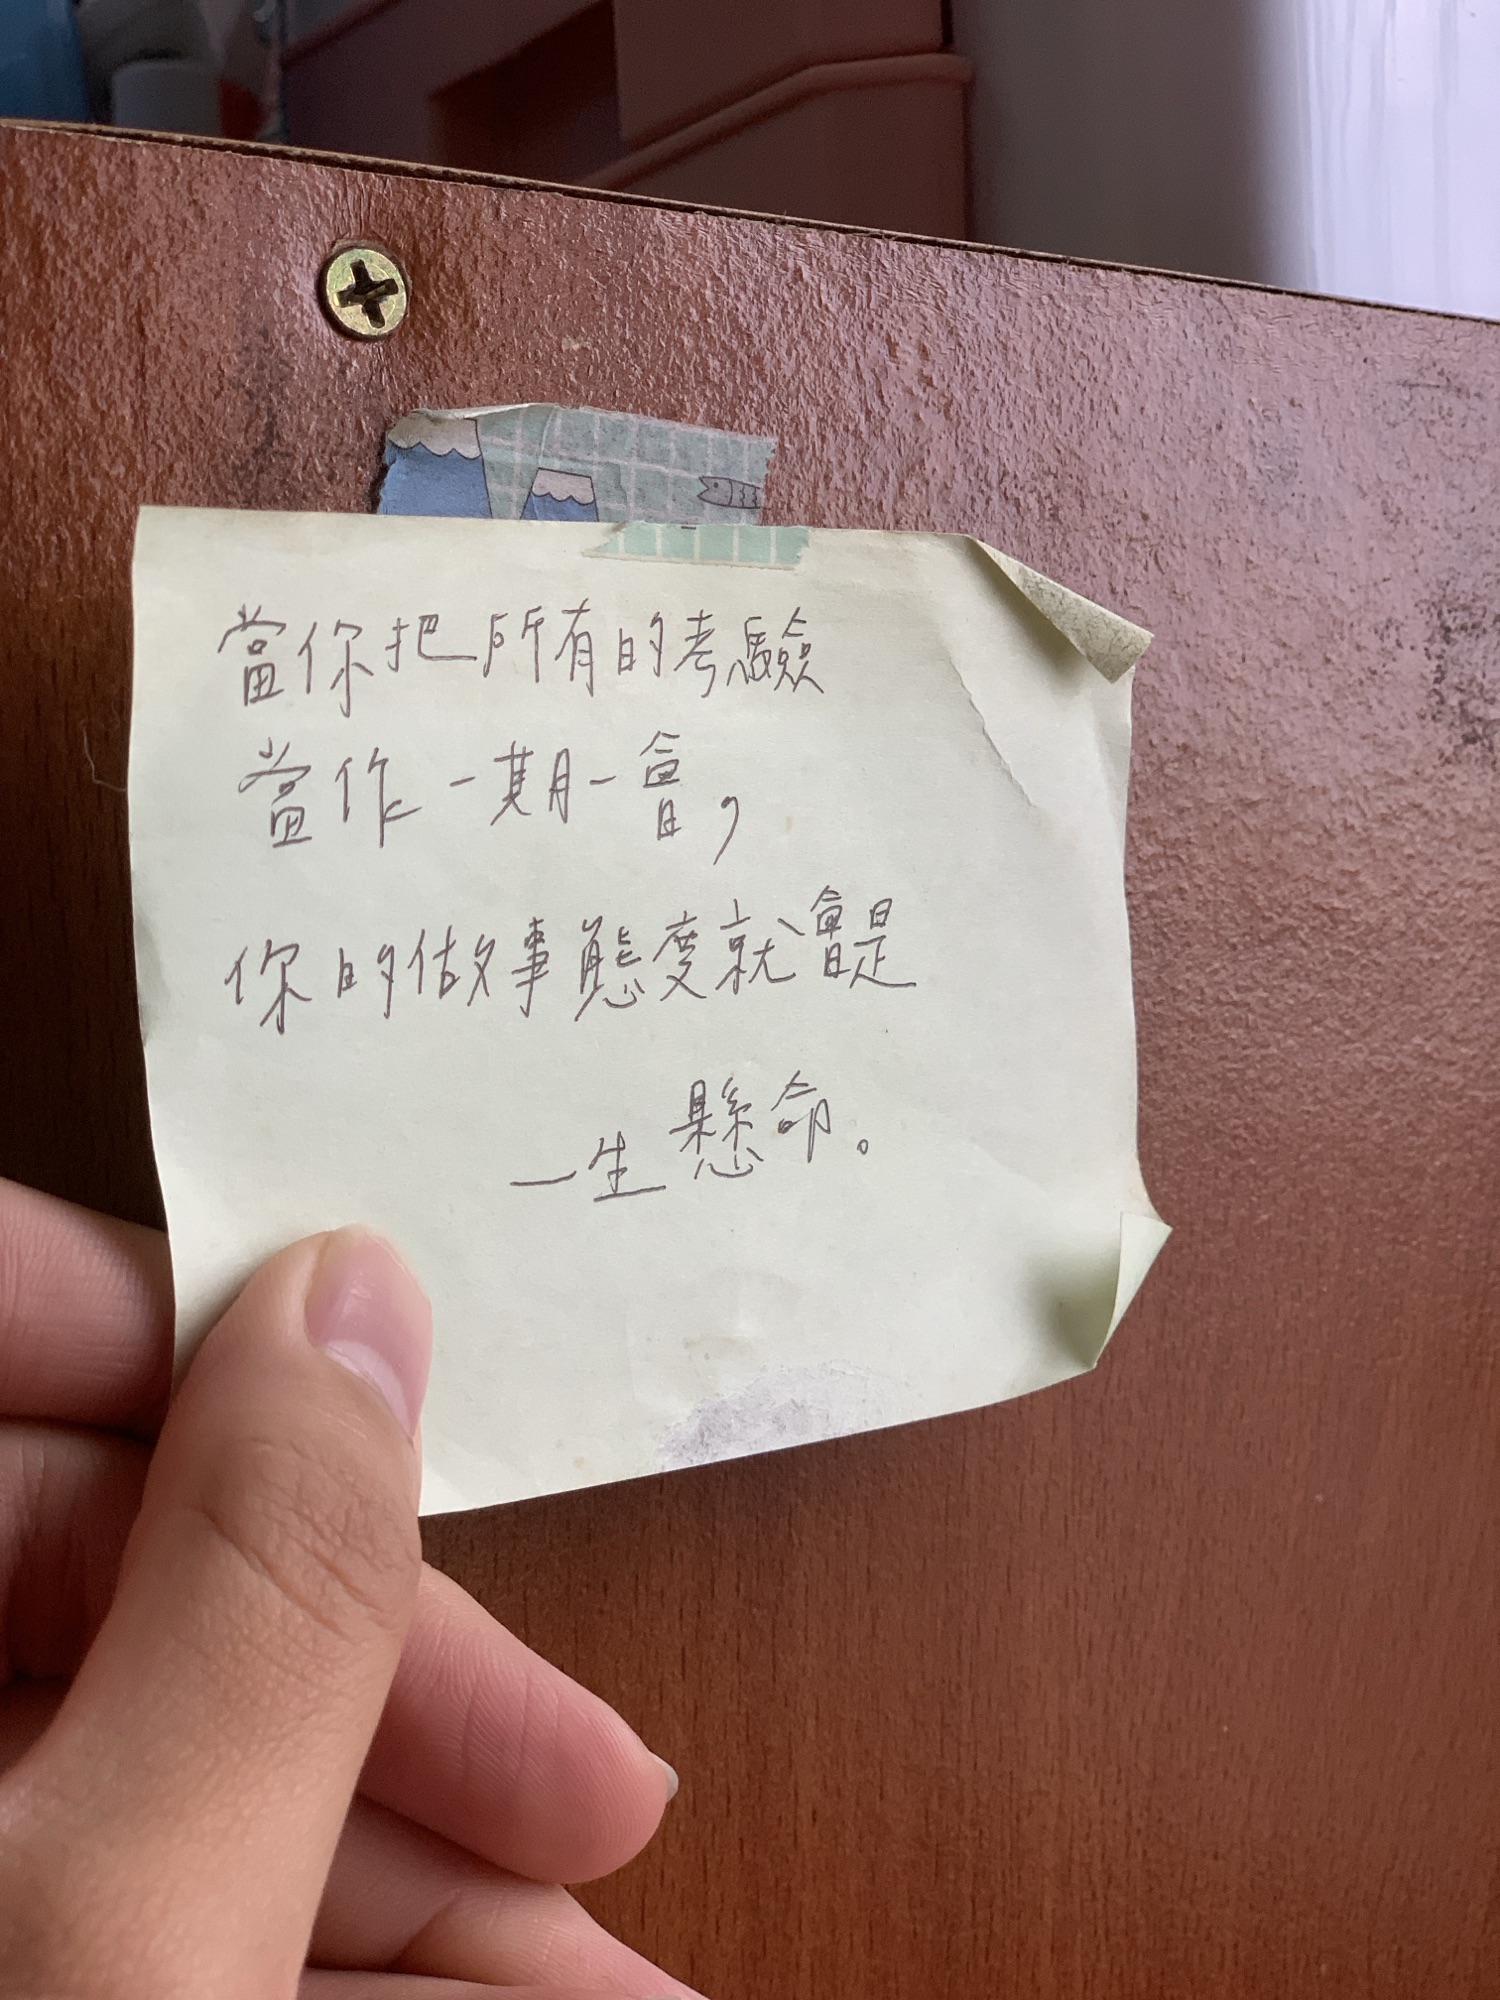 當你把所有的考驗
當作一期一會，
你的做事態度就會是
一生懸命。